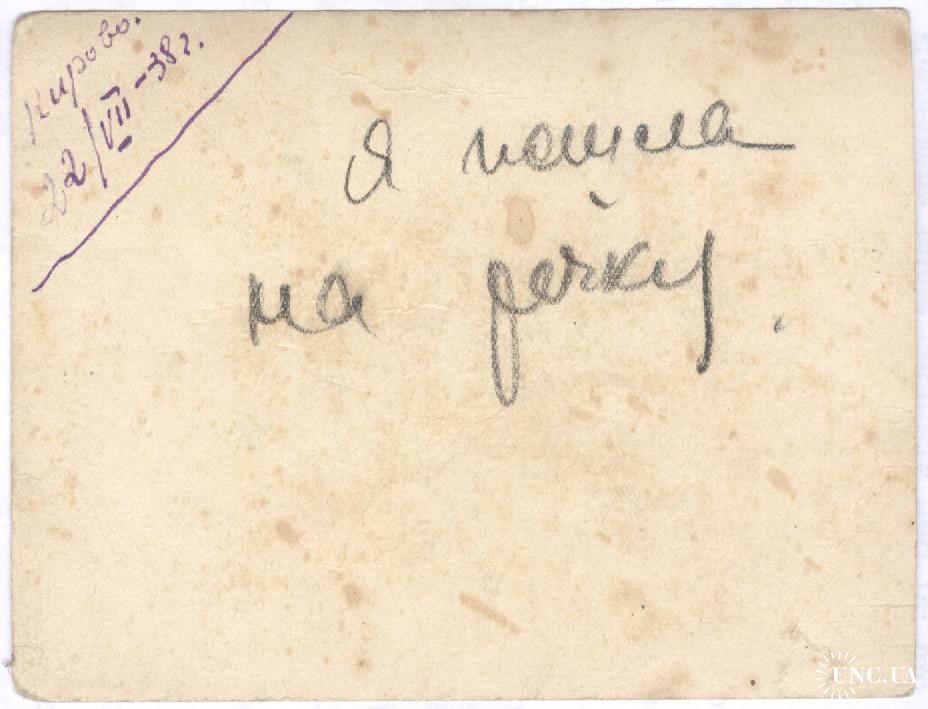 Кирово.
22/VII-38г.
Я пошла
на речку.
UNC.UA